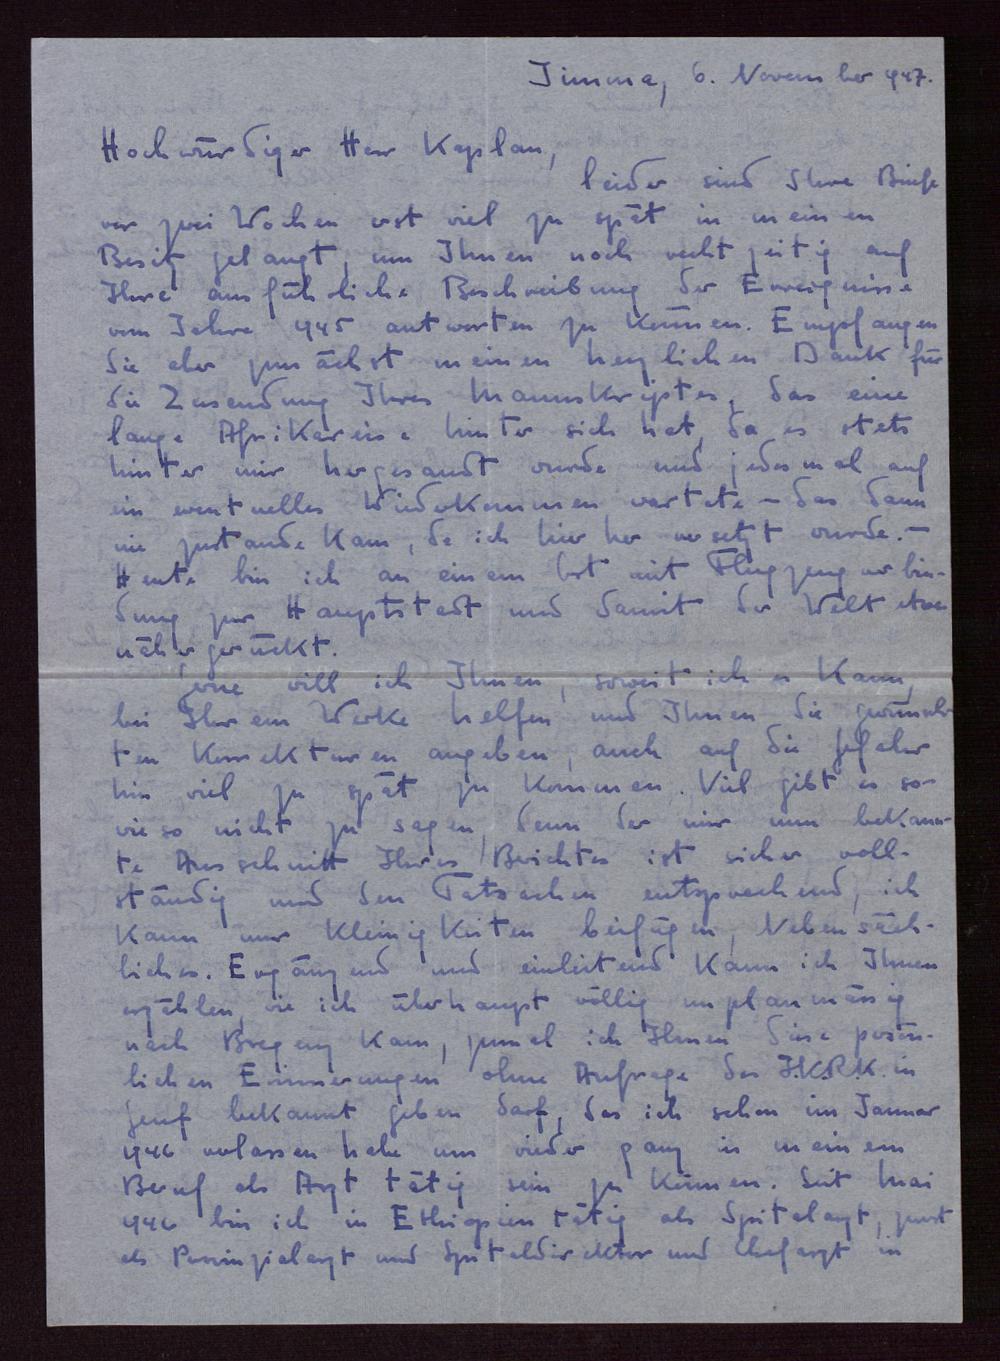 Jimma, 6. November 947.
Hochwürdiger Herr Kaplan,
leider sind Ihre Briefe
vor zwei Wochen erst viel zu spät in meinen
Besitz gelangt, um Ihnen noch rechtzeitig auf
Ihre ausführliche Beschreibung der Ereignisse
vom Jahre 945 antworten zu können. Empfangen
Sie aber zunächst meinen herzlichen Dank für
die Zusendung Ihres Manuskriptes, das eine
lange Afrikareise hinter sich hat, da es stets
hinter mir hergesandt wurde und jedesmal auf
ein eventuelles Wiederkommen wartete – das dann
nie zustande kam, da ich hierher versetzt wurde. –
Heute bin ich an einem Ort mit Flugzeugverbin-
dung zur Hauptstadt und damit der Welt etwas
näher gerückt.
Gerne will ich Ihnen, soweit ich es kann,
bei Ihrem Werke helfen und Ihnen die gewünsch-
ten Korrekturen angeben, auch auf die Gefahr
hin viel zu spät zu kommen. Viel gibt es so-
wieso nicht zu sagen, denn der mir nun bekann-
te Ausschnitt Ihres Berichtes ist sicher voll-
ständig und den Tatsachen entsprechend, ich
kann nur Kleinigkeiten beifügen, Nebensäch-
liches. Ergänzend und einleitend kann ich Ihnen
erzählen, wie ich überhaupt völlig unplanmässig
nach Bregenz kam, zumal ich Ihnen diese persön-
lichen Erinnerungen ohne Anfrage des I.K.R.K. in
Genf bekannt geben darf, das ich schon im Januar
946 verlassen habe um wieder ganz in meinem
Beruf als Arzt tätig sein zu können. Seit Mai
946 bin ich in Ethiopien tätig als Spitalarzt, zuerst
als Provinzialarzt und Spitaldirektor und Chefarzt in